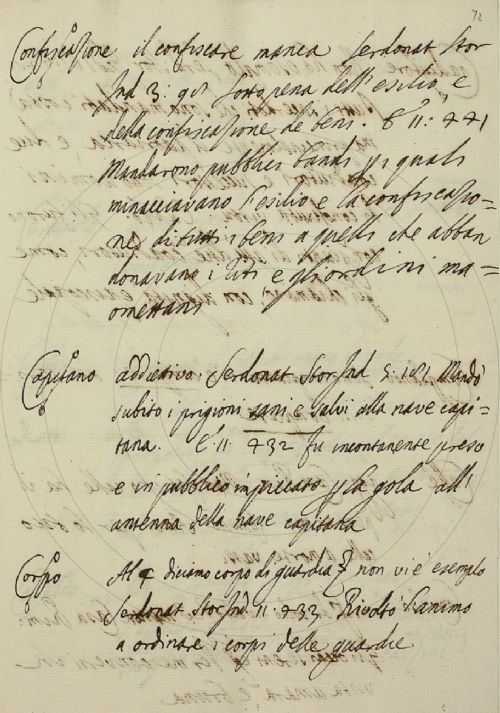 72
Confiscazione il confiscare manca Serdonat Stor
Ind 3: 901 sotto pena dell'esilio, e
della confiscazione de beni. E 11: 441
Mandarono pubblici bandi pi quali
minacciavano l'esilio e la confiscazio=
ne di tutti i beni a quelli che abban
donavano i riti e gli ordini ma=
omettani
Capitano addiettivo: Serdonat Stor Ind 5 181 Mandò
subito i prigioni sani e salvi alla nave capi=
tana. E 11 432 fu incontanente preso
e in pubblico impiccato p la gola all'
antenna della nave capitana
Corpo Al diciamo corpo di guardia non vi è esempio
Serdonat Stor Ind. 11. 433 Rivoltò l'animo
a ordinare i corpi delle guardie